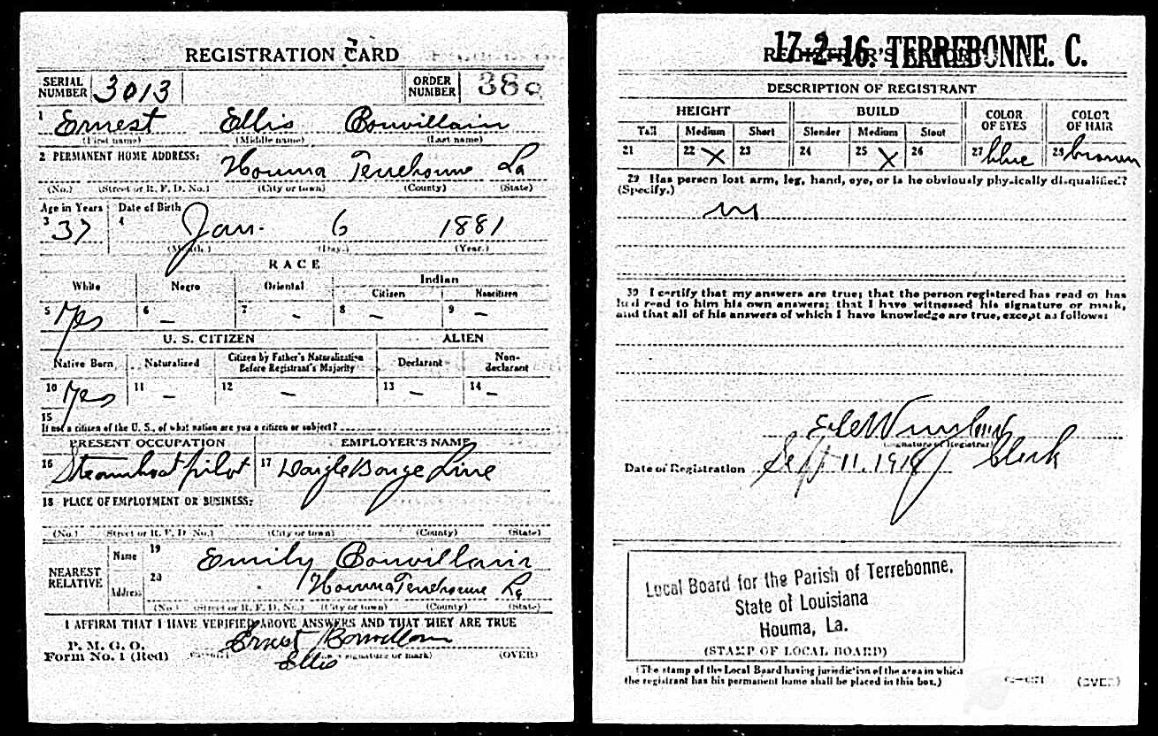 REGISTRATION CARD
SERIAL NUMBER 3013 ORDER NUMBER
1 Ernest Ellis Bouvillain
(First name) (Middle name) (Last name)
2 PERMANENT HOME ADDRESS:
Houma Terrebonne La
(No.) (Street or R. F. D. No.) (City or town) (County) (State)
Age in Years Date of Birth
3 37 4 Jan. 6 1881
(Month.) (Day.) (Year.)
RACE
White Negro Oriental Indian
Citizen Noncitizen
5 Yes 6 – 7 – 8 – 9 –
U. S. CITIZEN ALIEN
Native Born Naturalized Citizen by Father's Naturalization Before Registrant's Majority Declarant Non-declarant
10 Yes 11 – 12 – 13 – 14 –
15
If not a citizen of the U. S., of what nation are you a citizen or subject?
PRESENT OCCUPATION EMPLOYER'S NAME
16 Steamboat pilot 17 Daigle Barge Line
18 PLACE OF EMPLOYMENT OR BUSINESS:
(No.) (Street or R. F. D. No.) (City or town) (County) (State)
NEAREST RELATIVE
Name 19 Emily Bouvillain
Address 20 Houma Terrebonne La
(No.) (Street or R. F. D. No.) (City or town) (County) (State)
I AFFIRM THAT I HAVE VERIFIED ABOVE ANSWERS AND THAT THEY ARE TRUE
P. M. G. O.
Form No. 1 (Red) Ernest Bouvillain
Ellis (signature or mark) (OVER)
REGISTRAR'S 17-2-16. TERREBONNE. C.
DESCRIPTION OF REGISTRANT
HEIGHT BUILD COLOR OF EYES COLOR OF HAIR
Tall Medium Short Slender Medium Stout
21 22 X 23 24 25 X 26 27 blue 28 brown
29 Has person lost arm, leg, hand, eye, or is he obviously physically disqualified?
(Specify.)
30 I certify that my answers are true; that the person registered has read or has
had read to him his own answers; that I have witnessed his signature or mark,
and that all of his answers of which I have knowledge are true, except as follows:
(Signature of Registrar)
Date of Registration Sept 11. 1918 Clerk
Local Board for the Parish of Terrebonne,
State of Louisiana
Houma, La.
(STAMP OF LOCAL BOARD)
(The stamp of the Local Board having jurisdiction of the area in which
the registrant has his permanent home shall be placed in this box.)
(OVER)